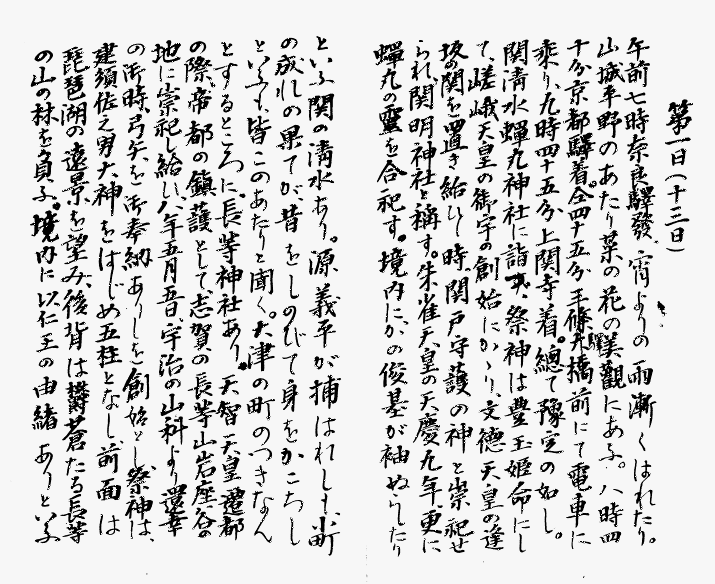 第一日(十三日)
午前七時奈良驛發、宵よりの雨漸くはれたり。
山城平野のあたり菜の花の美觀にあふ。八時四
十分京都驛着。全四十五分五條大橋前にて電車に
乘り、九時四十五分上関寺着。總て豫定の如し。
関清水蟬丸神社に詣す。祭神は豊玉姫命にし
て、嵯峨天皇の御宇の創始にかゝり、文德天皇の逢
坂の関を置き給ひし時、関戸守護の神と崇祀せ
られ関明神社と稱す。朱雀天皇の天慶九年、更に
蟬丸の靈を合祀す。境内にかの俊基が袖ぬらしたり
といふ関の清水あり。源義平が捕はれしも、小町
の成れの果てが、昔をしのびて身をかこちし
といふも、皆このあたりと聞く。大津の町のつきなん
とするところに、長等神社あり。天智天皇遷都
の際、帝都の鎮護として志賀の長等山岩座谷の
地に崇祀し給ひ、八年五月五日、宇治の山科より還幸
の御時、弓矢を御奉納ありしを創始とし、祭神は、
建須佐之男大神をはじめ五柱となし、前面は
琵琶湖の遠景を望み、後背は欝蒼たる長等
の山の林を負ふ。境内に以仁王の由緒ありといふ